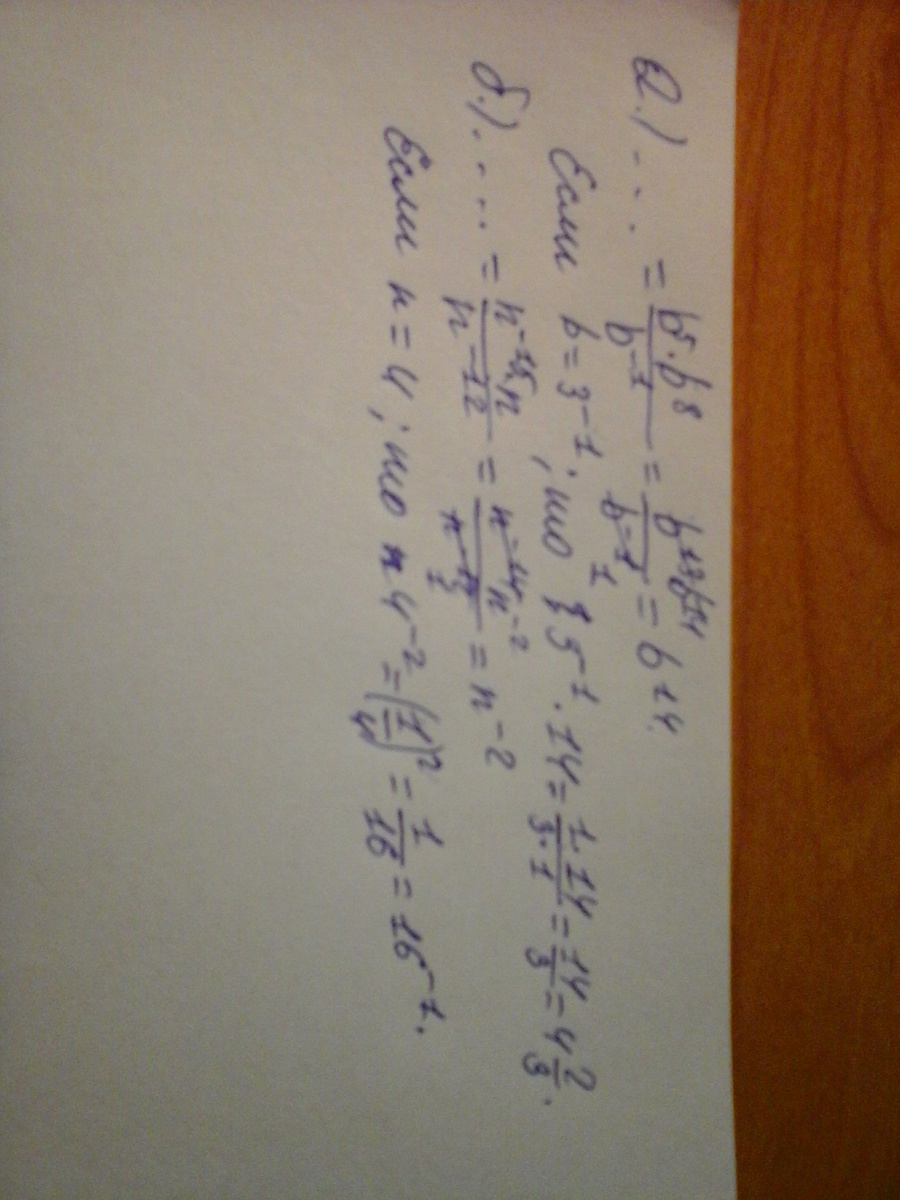 а.) ... = b⁵·b⁸/b⁻¹ = b¹³/b⁻¹ = b¹⁴.
Если b = 3⁻¹, то 3⁻¹·14 = 1·14/3·1 = 14/3 = 4 2/3.
б.) ... = n⁻¹⁵n/n⁻¹² = n⁻¹⁴/n⁻¹² = n⁻²
Если n = 4, то 4⁻² = (1/4)² = 1/16 = 16⁻¹.